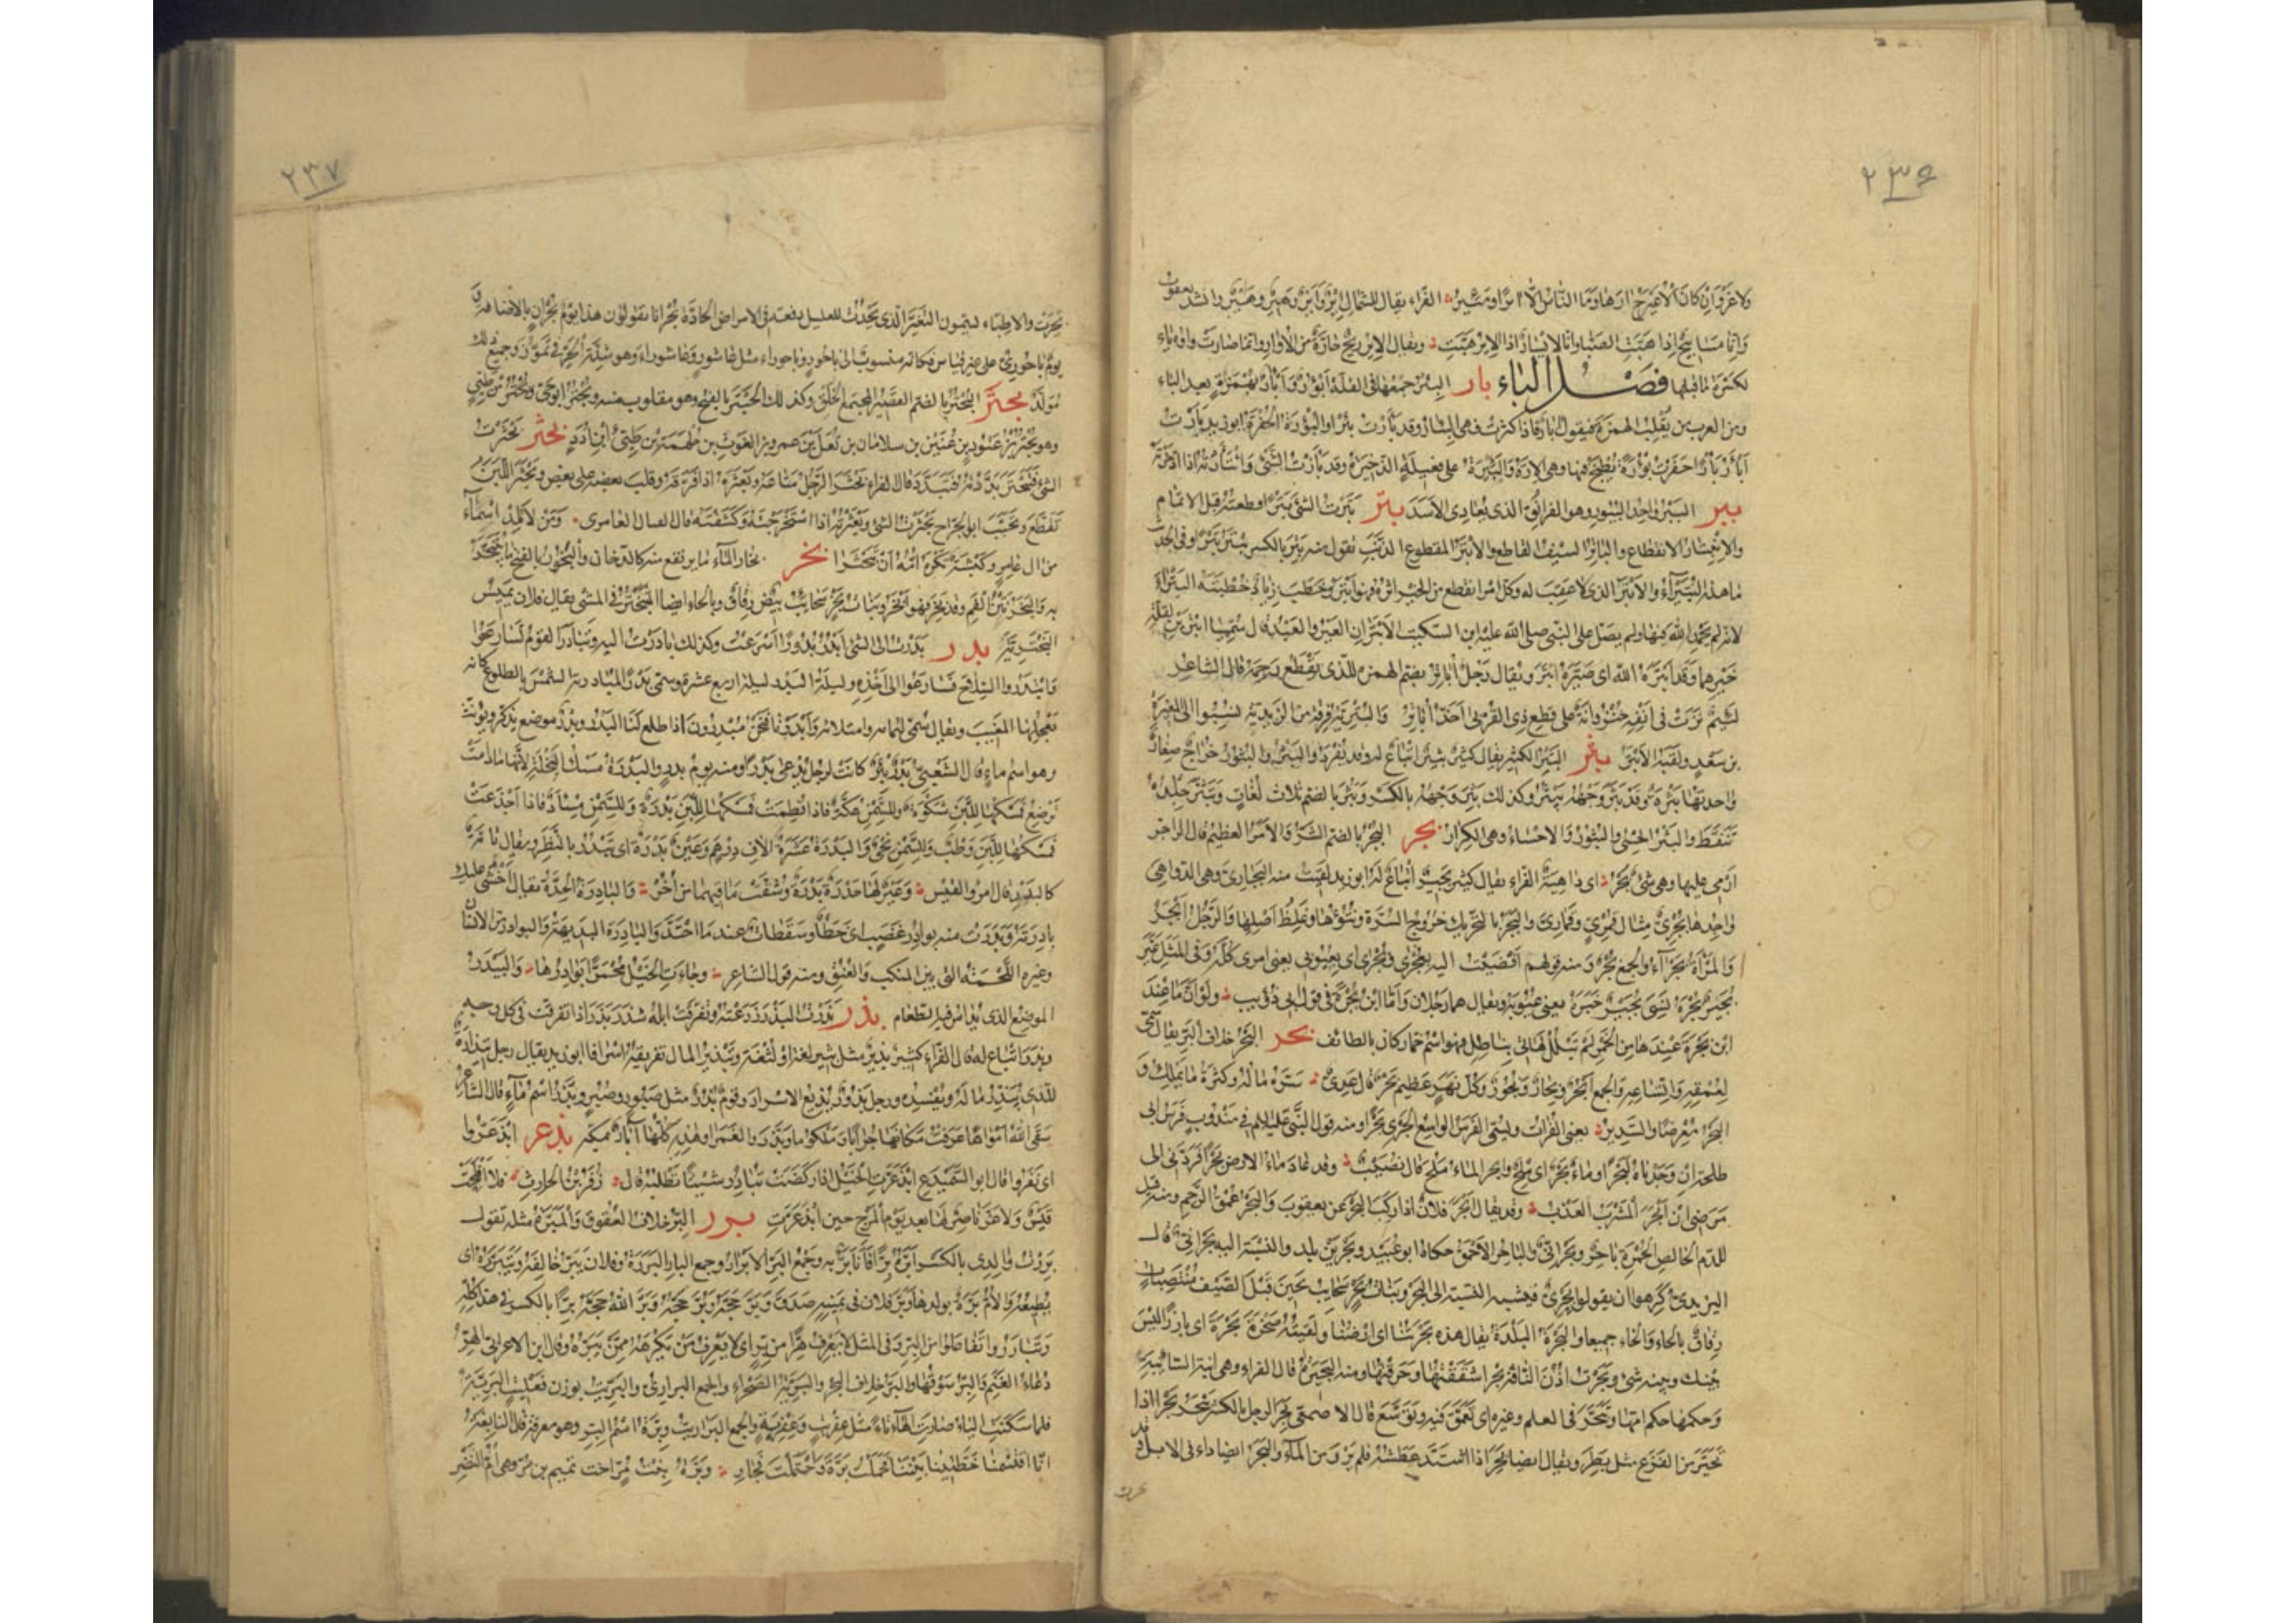 ٢٣٦
ولا غرو ان كان الاعيرج ارها وما الناس الا ايرا ومئير الفراء يقال للشمال اير واير وهير وهير وانشد يعقوب
وانا مسامیح اذا هبت الصبا وانا لايسار اذا الاير هبت ويقال الاير ريح حارة من الاوار وانما صارت واوه ياء
لكسرة ما قبلها فصل الباء بار البئر جمعها فى القلة ابؤر وابار بهمزة بعد الباء
ومن العرب من يقلب الهمزة فيقول ابار فاذا كثرت فهى البئار وقد بارت بئرا والبؤرة الحفرة ابو زيد بارت
ابار بارا حفرت بؤرة يطبخ فيها وهى الارة والبئيرة على فعيلة الذخيرة وقد بارت الشئ وابتارته اذا ادخرته
ببر الببر واحد الببور وهو الفرانق الذى يعادى الاسد بتر بترت الشئ بترا وطعته قبل الاتمام
والانبتار الانقطاع والباتر السيف القاطع والابتر المقطوع الذنب تقول منه بتر بالكسر يبتر بترا وفى الحديث
ما هذه البتيراء والابتر الذى لا عقب له وكل امر انقطع من الخير اثره فهو ابتر وخطب زياد خطبته البتراء
لانه لم يحمد الله فيها ولم يصل على النبى صلى الله عليه ابن السكيت الابتران العير والعبد قال سميا ابترين لقلة
خيرهما وقد ابتره الله اى صيره ابتر ويقال رجل اباتر بضم الهمزة للذى يقطع رحمه قال الشاعر
لئيم نزت فى انفه خنزوانة على قطع ذى القربى احذ اباتر والبترية فرقة من الزيدية نسبوا الى المغيرة
بن سعد ولقبه الابتر بثر البثر الكثير يقال كثير بثير اتباع له وقد يفرد والبثر والبثور خراج صغار
واحدتها بثرة وقد بثر وجهه يبثر وكذلك بثر وجهه بالكسر وبثر بالضم ثلاث لغات وتبثر جلده
تنفط والبثر الحسى والبثور والاحساء وهى الكرار بجر البجر بالضم الشر والامر العظيم قال الراجز
ارمى عليها وهى شئ بجر اى داهية الفراء يقال كثير بجير اتباع له ابو زيد لقيت منه البجارى وهى الدواهى
واحدها بجرى مثال قمرى وقمارى والبجر بالتحريك خروج السرة ونتوءها وغلظ اصلها والرجل ابجر
والمراة بجراء والجمع بجر ومنه قولهم افضيت اليه بعجرى وبجرى اى بعيوبى يعنى امرى كله وفى المثل عير
بجير بجرة نسى بجير خبره يعنى عيوبه ويقال هما رجلان واما ابن بجرة فى قول ابى ذؤيب ولو ان ما عند
ابن بجرة عندها من الخمر لم تبلل لهاتى بناطل فهو اسم خمار كان بالطائف بحر البحر خلاف البر يقال سمى
لعمقه واتساعه والجمع ابحر وبحار وبحور وكل نهر عظيم بحر قال عدى سره ماله وكثرة ما يملك و
البحر معرضا والسدير يعنى الفرات ويسمى الفرس الواسع الجرى بحرا ومنه قول النبى عليه السلم فى مندوب فرس ابى
طلحة ان وجدناه لبحرا وماء بحر اى ملح وابحر الماء ملح قال نصيب وقد عاد ماء الارض بحرا فردنى الى
مرضى ان ابحر المشرب العذب وقد يقال ابحر فلان اذا ركب البحر عن يعقوب والبحر عمق الرحم ومنه قيل
للدم الخالص الحمرة باحر وبحرانى والباحر الاحمق حكاه ابو عبيد وبحرين بلد والنسبة اليه بحرانى قال
اليزيدى كرهوا ان يقولوا بحرى فيشبه النسبة الى البحر وبنات بحر سحايب يجئن قبل الصيف منتصبات
رقاق بالحاء والخاء جميعا والبحرة البلدة يقال هذه بحرتنا اى ارضنا ولقيته صحرة بحرة اى بارزا ليس
بينك وبينه شئ وبحرت اذن الناقة بحرا شققتها وخرقتها ومنه البحيرة قال الفراء وهى ابنة السائبة
وحكمها حكم امها وتبحر فى العلم وغيره اى تعمق فيه وتوسع قال الاصمعى بحر الرجل بالكسر يبحر بحرا اذا
تحير من الفزع مثل بطر ويقال ايضا بحر اذا اشتد عطشه فلم يرو من الماء والبحر ايضا داء فى الابل وقد
٢٣٧
بحرت والاطباء يسمون التغير الذى يحدث للعليل دفعة فى الامراض الحادة بحرانا يقولون هذا يوم بحران بالاضافة و
يوم باحورى على غير قياس فكانه منسوب الى باحور وباحوراء مثل عاشور وعاشوراء وهو شدة الحر فى تموز وجميع ذلك
مولد بحتر البحتر بالضم القصير المجتمع الخلق وكذلك الحبتر بالفتح وهو مقلوب منه وبحتر ابو حى من طيئ
وهو بحتر بن عتود بن عنين بن سلامان بن ثعل بن عمرو بن الغوث بن جلهمة بن طيئ ابن ادد بحثر بحثرت
الشئ فتبحثر بددته فتبدد قال الفراء بحثر الرجل متاعه وبعثره اذا فرقه وقلب بعضه على بعض وبحثر اللبن
تقطع وتحبب ابو الجراح بحثرت الشئ وبعثرته اذا استخرجته وكشفته قال القتال العامرى ومن لا تلد اسماء
من ال عامر وكبشة تكره امه ان تبحثرا بخر بخار الماء ما يرتفع منه كالدخان والبخور بالفتح ما يتبخر
به والبخر نتن الفم وقد بخر فهو ابخر وبنات بخر سحايب بيض رقاق وبالحاء ايضا التبختر فى المشى يقال فلان يمشى
البخترية بدر بدرت الى الشئ ابدر بدورا اسرعت وكذلك بادرت اليه وتبادر القوم تسارعوا
وابتدروا السلاح تسارعوا الى اخذه وليلة البدر ليلة اربع عشرة وسمى بدرا لمبادرته الشمس بالطلوع كانه
يعجلها المغيب ويقال سمى لتمامه وامتلائه وابدرنا فنحن مبدرون اذا طلع لنا البدر وبدر موضع يذكر ويؤنث
وهو اسم ماء قال الشعبى بدر بئر كانت لرجل يدعى بدرا ومنه يوم بدر والبدرة مسك السخلة لانها ما دامت
ترضع فمسكها للبن شكوة وللسمن عكة فاذا فطمت فمسكها للبن بدرة وللسمن مساد فاذا اجذعت
فمسكها للبن وطب وللسمن نحى والبدرة عشرة الاف درهم وعين بدرة اى تبدر بالنظر ويقال تامة
كالبدر قال امرو القيس وعين لها حدرة بدرة وشقت ماقيهما من اخر والبادرة الحدة يقال اخشى عليك
بادرته وبدرت منه بوادر غضب اى خطا وسقطات عند ما احتد والبادرة البديهة والبوادر من الانسان
وغيره اللحمة التى بين المنكب والعنق ومنه قول الشاعر وجاءت الخيل محمرا بوادرها والبيدر
الموضع الذى يداس فيه الطعام بذر بذرت البذر زرعته وتفرقت ابله شذر بذر اذا تفرقت فى كل وجه
وبذر اتباع له قال الفراء كثير بذير مثل بثير لغة او لثغة وتبذير المال تفريقه اسرافا ابو زيد يقال رجل تبذارة
للذى يبذر ماله ويفسده ورجل بذور يذيع الاسرار وقوم بذر مثل صبور وصبر وبذر اسم ماء قال الشاعر
سقى الله امواها عرفت مكانها جرابا وملكوما وبذر والغمرا وهذه كلها ابار بمكة بذعر ابذعروا
اى تفرقوا قال ابو السميدع ابذعرت الخيل اذا ركضت تبادر شيئا تطلبه قال زفر بن الحارث فلا افلحت
قيس ولا عز ناصر لها بعد يوم المرج حين ابذعرت برر البر خلاف العقوق والمبرة مثله تقول
بررت والدى بالكسر ابره برا فانا بر به وبار وجمع البر الابرار وجمع البار البررة وفلان يبر خالقه ويتبرره اى
يطيعه والام برة بولدها وبر فلان فى يمينه صدق وبر حجه وبر حجه وبر الله حجه برا بالكسر فى هذا كله
وتباروا تفاعلوا من البر وفى المثل لا يعرف هرا من بر اى لا يعرف من يكرهه ممن يبره وقال ابن الاعرابى الهر
دعاء الغنم والبر سوقها والبر خلاف البحر والبرية الصحراء والجمع البرارى والبريت بوزن فعليت البرية
فلما سكنت الياء صارت الهاء تاء مثل عفريت وعفرية والجمع البراريت وبرة اسم البر وهو معرفة قال النابغة
انا اقتسمنا خطتينا بيننا فحملت برة واحتملت فجار وبرة بنت مر اخت تميم بن مر وهى ام النضر